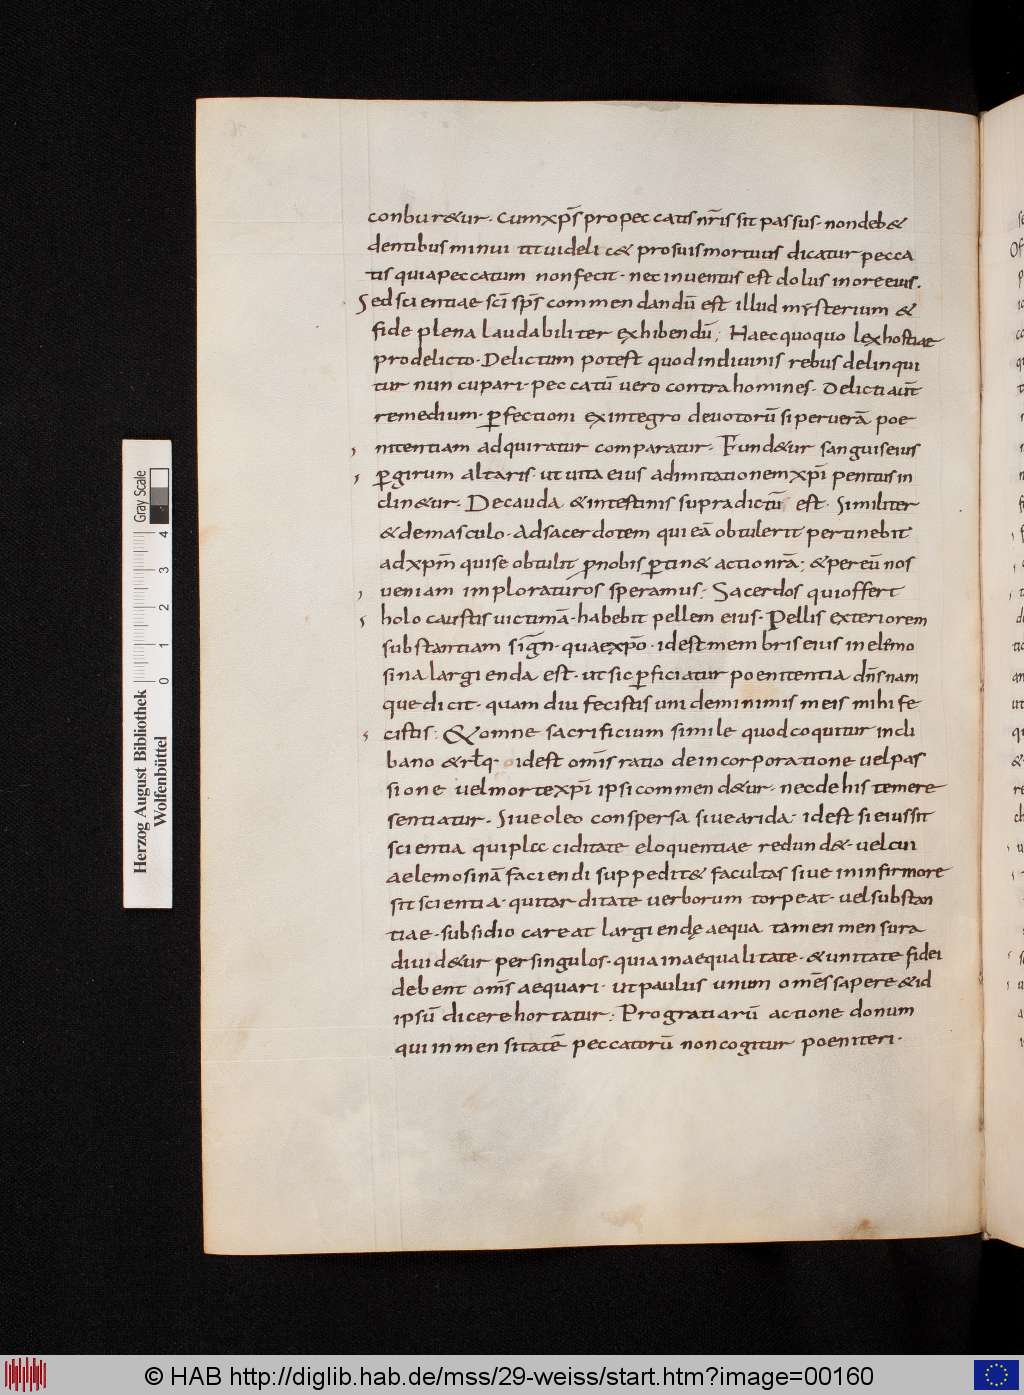 conbur&ur· Cumxp̄s propeccatis nr̄is sit passus· nondeb&
dentibus minui utvideli c& prosuis mortuus dicatur pecca
tis quiapeccatum nonfecit· nec inventus est dolus inore eius.
Sed scientiae sc̄i sp̄s commendandū est illud mysterium &
fide plena laudabiliter exhibendū; Haec quoquo lex hostiae
prodelicto· Delictum potest quod indivinis rebus delinqui
tur nuncupari· peccatū vero contra homines· Delicti aut̄
remedium· ꝑfectioni ex integro devotorū si per verā poe
nitentiam adquiratur comparatur· Fund&ur sanguis eius
ꝑgirum altaris· ut vita eius adimitationem xp̄i penitus in
clin&ur· De cauda &intestinis supradictū est· Similiter
&demasculo· Adsacerdotem qui eā obtulerit pertinebit
adxpm̄ quise obtulit pronobis ꝑtin& actionrā; &pereū nos
veniam imploraturos speramus; Sacerdos qui offert
holocaustis victimā· habebit pellem eius· Pellis exteriorem
substantiam sign̄· quaexpō· idest membris eius in elemo
sina largienda est· ut sic ꝑficiatur poenitentia dn̄s nam
que dicit· quam diu fecistis uni deminimis meis mihi fe
cistis; &omne sacrificium simile quod coquitur incli
bano &rlq· idest om̄is ratio deincorporatione vel pas
sione vel morte xp̄i ipsi commend&ur· nec de his temere
sentiatur· Sive oleo conspersa sive arida; idest si eius sit
scientia qui plec ciditate eloquentiae redund&· vel cui
aelemosinā faciendi suppedit& facultas sive in infirmore
sit scientia· qui tarditate verborum torpeat· vel substan
tiae· subsidio careat largiendę aequa tamen mensura
divid&ur per singulos· quia in aequalitate· &unitate fidei
debent om̄s aequari· ut paulus unum om̄es sapere &id
ipsū dicere hortatur; Pro gratiarū actione donum
qui inmensitatē peccatorū non cogitur poeniteri·
Herzog August Bibliothek
Wolfenbüttel
0 1 2 3 4
Gray Scale
© HAB http://diglib.hab.de/mss/29-weiss/start.htm?image=00160